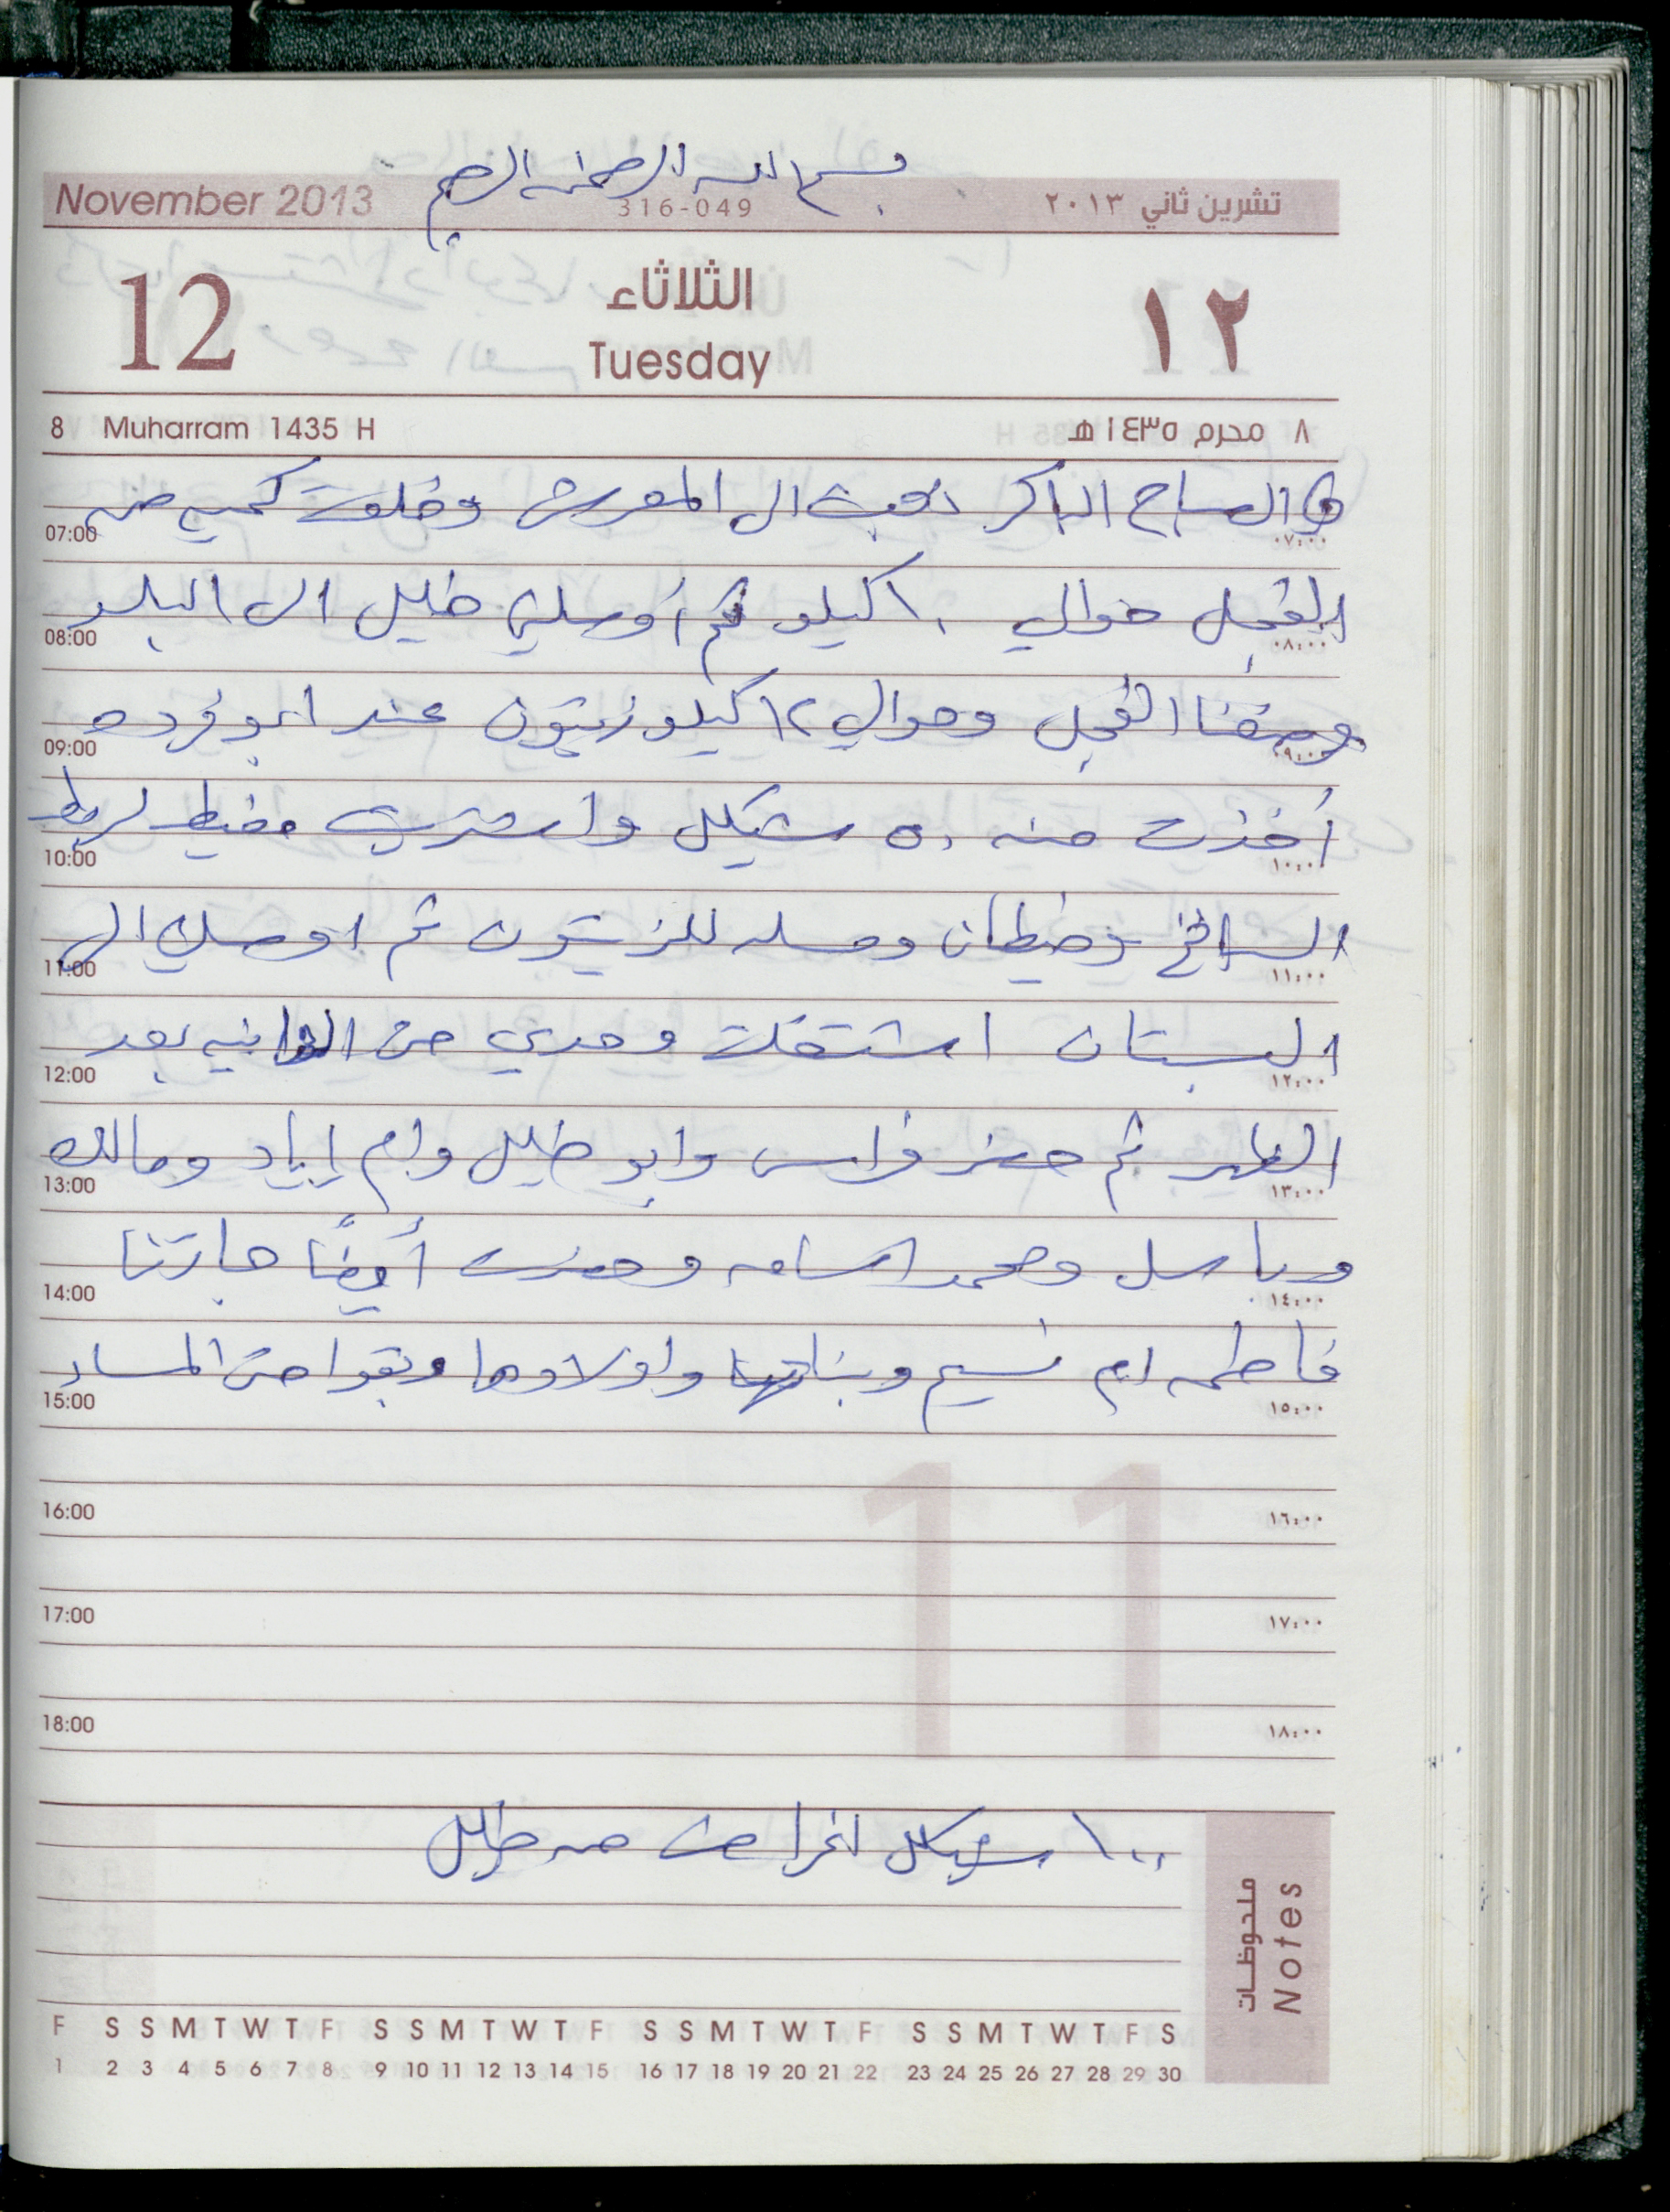 بسم الله الرحمن الرحيم
November 2013 316-049 تشرين ثاني ٢٠١٣
12 الثلاثاء ١٢
Tuesday
8 Muharram 1435 H ٨ محرم ١٤٣٥ هـ
في الصباح الباكر ذهبت الى المعرش وخلعت كميه من
07:00 ٠٧:٠٠
الفجل حوالي ١٠ كيلو ثم أوصلني خليل الى البلد
08:00 ٠٨:٠٠
وضعنا الفجل وحوالي ١٢ كيلو زيتون عند ابو فرده
09:00 ٠٩:٠٠
أخذت منه ٥٠ شيكل واشتريت مخيط لربط
10:00 ١٠:٠٠
السبانخ وخيطان وسله للزيتون ثم اوصلني الى
11:00 ١١:٠٠
البستان اشتغلت وحدي حتى الثانيه بعد
12:00 ١٢:٠٠
الظهر ثم حضر فراس وابو خليل وام إياد ومالك
13:00 ١٣:٠٠
وباسل ومحمد اسامه وحضرت أيضاً جارتنا
14:00 ١٤:٠٠
فاطمه ام نسيم وبناتها واولادها وبقوا حتى المساء
15:00 ١٥:٠٠
16:00 ١٦:٠٠
17:00 ١٧:٠٠
18:00 ١٨:٠٠
١٠٠ شيكل من خليل
ملحوظات
Notes
F S S M T W T F S S M T W T F S S M T W T F S S M T W T F S
1 2 3 4 5 6 7 8 9 10 11 12 13 14 15 16 17 18 19 20 21 22 23 24 25 26 27 28 29 30